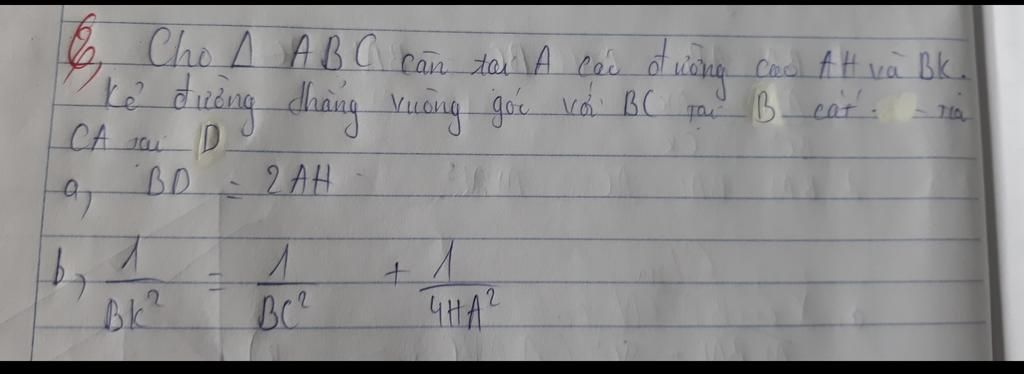 Cho Δ ABC cân tại A các đường cao AH và BK.
Kẻ đường thẳng vuông góc với BC tại B cắt tia
CA tại D
a, BD = 2AH
b, 1/BK² = 1/BC² + 1/4HA²